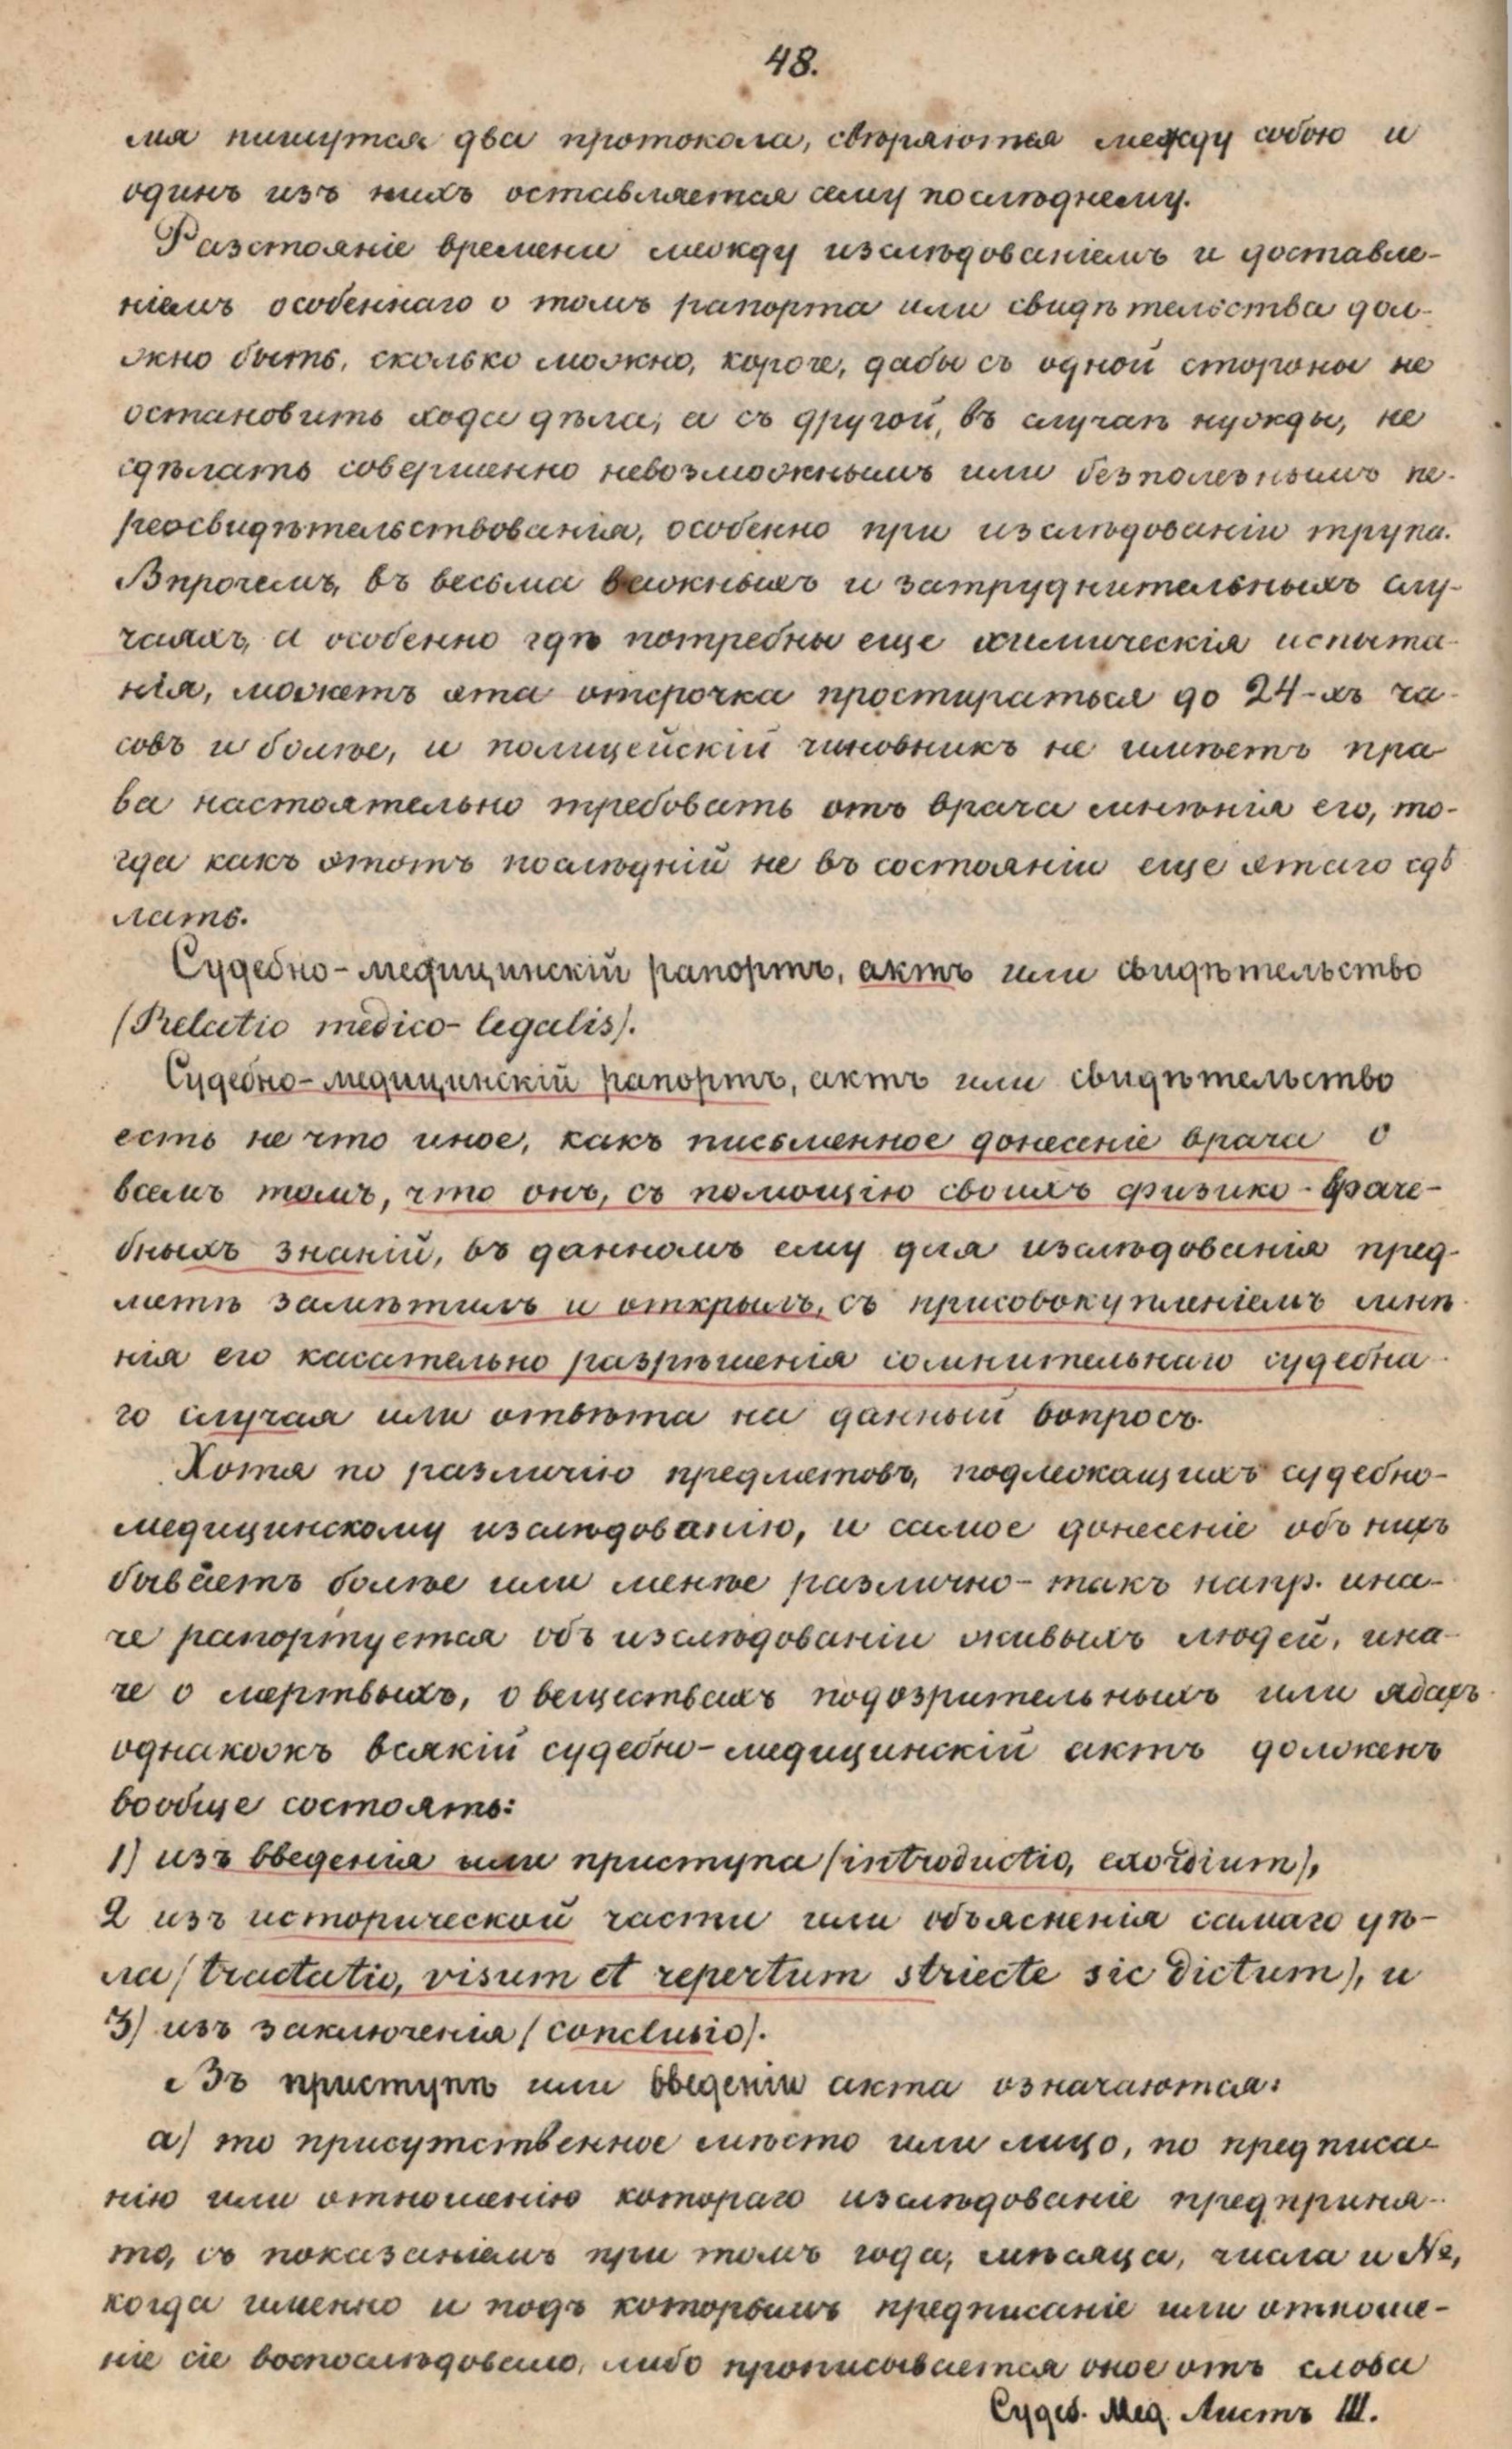 48.
мя пишутся два протокола, свѣряются между собою и
одинъ изъ нихъ оставляется сему послѣднему.
Разстояніе времени между изслѣдованіемъ и доставле-
ніемъ особеннаго о томъ рапорта или свидѣтельства дол-
жно быть, сколько можно, короче, дабы съ одной стороны не
остановить хода дѣла, а съ другой, въ случаѣ нужды, не
сдѣлать совершенно невозможнымъ или безполезнымъ пе-
реосвидѣтельствованія, особенно при изслѣдованіи трупа.
Впрочемъ, въ весьма важныхъ и затруднительныхъ слу-
чаяхъ, а особенно гдѣ потребны еще химическія испыта-
нія, можетъ эта отсрочка простираться до 24-хъ ча-
совъ и болѣе, и полицейскій чиновникъ не имѣетъ пра
ва настоятельно требовать отъ врача мнѣнія его, то-
гда какъ этотъ послѣдній не въ состояніи еще этаго сдѣ
лать.
Судебно-медицинскій рапортъ, актъ или свидѣтельство
(Relatio medico-legalis).
Судебно-медицинскій рапортъ, актъ или свидѣтельство
есть не что иное, какъ письменное донесеніе врача о
всемъ томъ, что онъ, съ помощію своихъ физико-враче-
бныхъ знаній, въ данномъ ему для изслѣдованія пред-
метѣ замѣтилъ и открылъ, съ присовокупленіемъ мнѣ-
нія его касательно разрѣшенія сомнительнаго судебна-
го случая или отвѣта на данный вопросъ.
Хотя по различію предметовъ, подлежащихъ судебно-
медицинскому изслѣдованію, и самое донесеніе объ нихъ
бываетъ болѣе или менѣе различно- такъ напр. ина-
че рапортуется объ изслѣдованіи живыхъ людей, ина-
че о мертвыхъ, о веществахъ подозрительныхъ или ядахъ
однакожъ всякій судебно-медицинскій актъ долженъ
вообще состоять:
1) изъ введенія или приступа (introductio, exordium),
2 изъ исторической части или объясненія самаго дѣ-
ла (tractatio, visum et repertum striecte sic dictum), и
3) изъ заключенія (conclusio).
Въ приступѣ или введеніи акта означаются:
а) то присутственное мѣсто или лицо, по предписа-
нію или отношенію котораго изслѣдованіе предприня-
то, съ показаніемъ при томъ года, мѣсяца, числа и №,
когда именно и подъ которымъ предписаніе или отноше-
ніе сіе воспослѣдовало, либо прописывается оное отъ слова
Судеб. Мед. Листъ III.